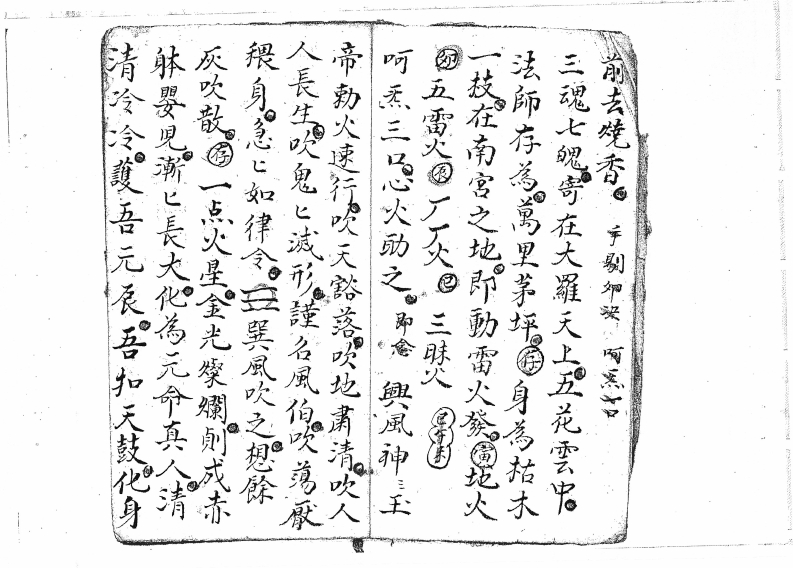 前去燒香 手剔卯決 呵炁一口
三魂七魄寄在大羅天上五花雲中
法師存為萬里茅坪存身為枯木
一枝在南宮之地即動雷火發當地火
卯五雷火辰厂丆火巳三昧火巳午未
呵炁三口心火助之即念興風神ミ玉
帝勅火速行吹天豁落吹地肅清吹人
人長生吹鬼匕滅形謹召風伯吹蕩厭
穢身急匕如律令☴巽風吹之想餘
灰吹散存一点火星金光燦爛則成赤
躰嬰兒漸匕長大化為元命真人清
清冷冷護吾元辰吾扣天鼓化身